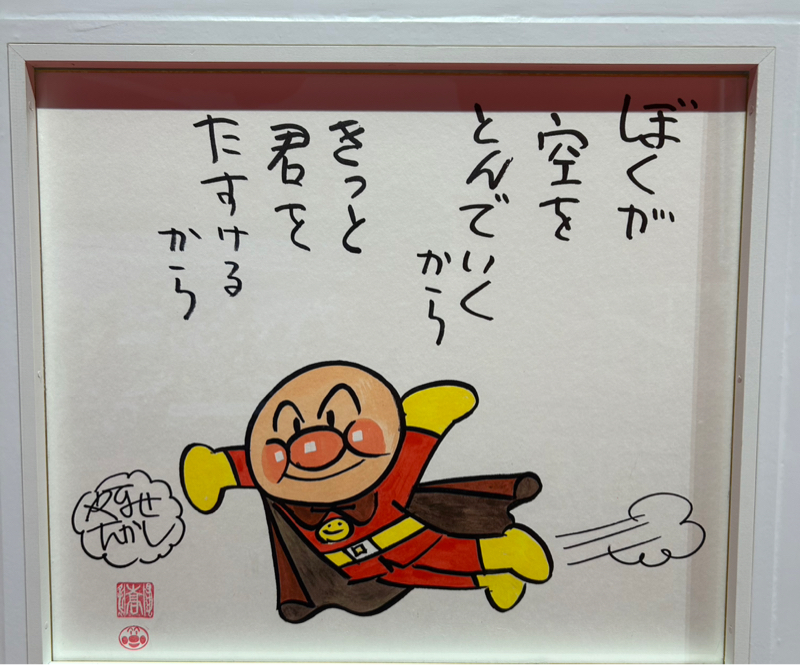 ぼくが
空を
とんでいく
から
きっと
君を
たすける
から
やなせ
たかし